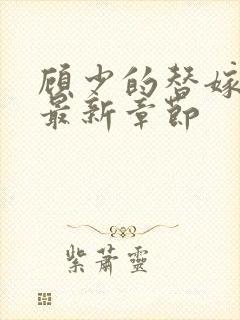 顾少的替嫁
最新章节
紫萧灵